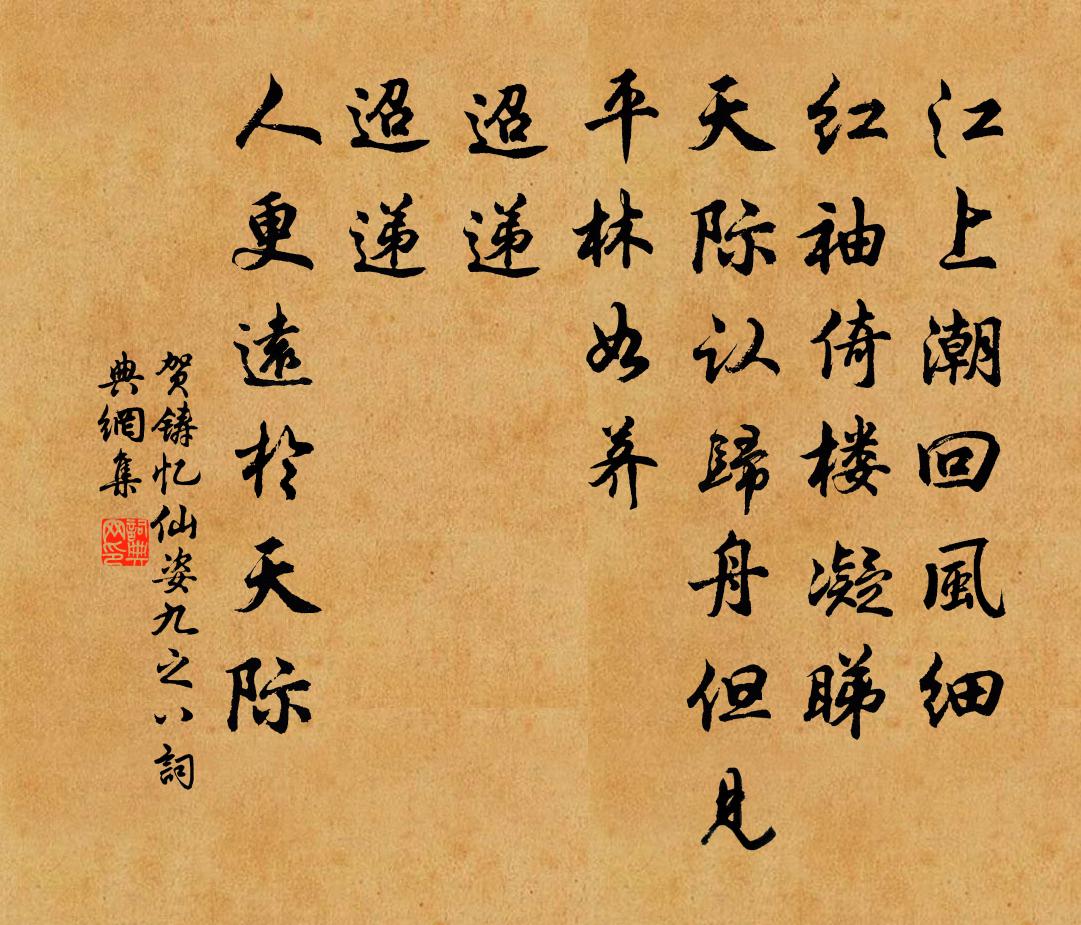 江上潮回風细
红袖倚楼凝睇
天际认歸舟但見
平林如荠
迢递
迢递
人更遠於天际
贺铸忆仙姿九之八詞
典網集
詞典
网印